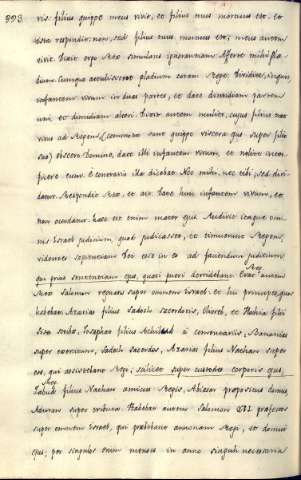 393.
vis: filius quippe meus vivit, et filius tuus mortuus est. et
ista respondit: non, sed filius tuus mortuus est, meus autem
vivit. Dixit ergo Rex simulans ignorantiam Afferte mihi gla-
dium. Cumque attulissent gladium coram Rege: Dividite, inquit,
infantem vivum in duas partes, et date dimidiam partem
uni et dimidiam alteri. Dixit autem mulier, cujus filius erat
vivus ad Regem (commota sunt quippe viscera ejus super filio
suo) obsecro Domine, date illi infantem vivum, et nolite inter-
ficere eum. E contrario illa dicebat Nec mihi, nec tibi, sed divi-
datur. Respondit Rex, et ait: Date huic infantem vivum, et
non occidatur: haec est enim mater ejus. Audivit itaque om-
nis Israel judicium, quod judicasset, et timuerunt Regem,
videntes sapientiam Dei esse in eo ad faciendum judicium
Erat autem
Rex Salomon regnans super omnem Israel. et hi principes, quos
habebat: Azarias filius Sadoch sacerdotis, Elioreb, et Hahia filii
Sisa scribae, Josaphat filius a commentariis, Banaias
super exercitum, Sadoch sacerdos, Azarias filius Nathan super
eos, qui assistebant Regi, scilicet super custodes corporis ejus
Zabud filius Nathan amicus Regis, Ahiasar praepositus domus,
Adoniram super tributa. Habebat autem Salomon XII praefectos
super omnem Israel, qui praebebant annonam Regi, et domui
ejus; per singulos enim menses in anno singuli necessaria